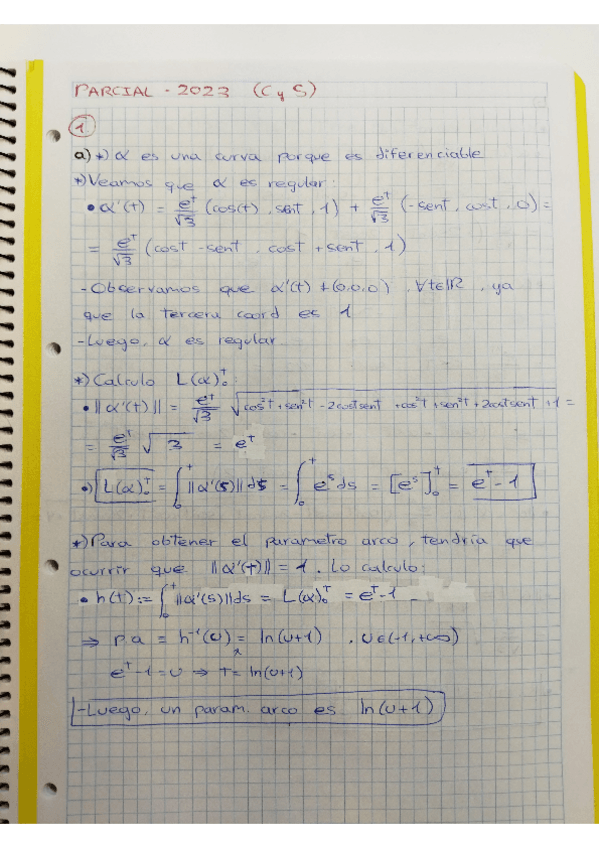 PARCIAL - 2023 (C y S)
①
a) *) α es una curva porque es diferenciable
*) Veamos que α es regular:
• α'(t) = e^t/√3 (cos(t), sent, 1) + e^t/√3 (-sent, cost, 0) =
= e^t/√3 (cost - sent, cost + sent, 1)
- Observamos que α'(t) ≠ (0,0,0), ∀t∈ℝ, ya
que la tercera coord es 1
- Luego, α es regular
*) Calculo L(α)₀^t:
• ||α'(t)|| = e^t/√3 √(cos²t + sen²t - 2costsent + cos²t + sen²t + 2costsent + 1) =
= e^t/√3 √3 = e^t
•) L(α)₀^t = ∫₀^t ||α'(s)||ds = ∫₀^t e^s ds = [e^s]₀^t = e^t - 1
*) Para obtener el parametro arco, tendria que
ocurrir que ||α'(t)|| = 1. Lo calculo:
• h(t) := ∫₀^t ||α'(s)||ds = L(α)₀^t = e^t - 1
⇒ p.a = h⁻¹(u) = ln(u+1) , u∈(-1,+∞)
e^t - 1 = u ⇒ t = ln(u+1)
- Luego, un param. arco es ln(u+1)